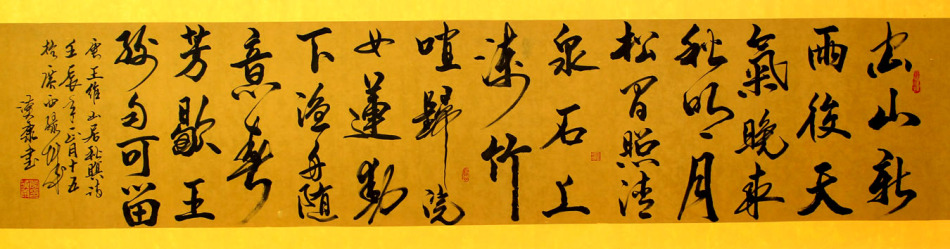 空山新
雨後天
氣晚来
秋明月
松间照清
泉石上
流竹
喧歸浣
女蓮動
下渔舟随
意春
芳歇王
孙自可留
唐王维山居秋暝詩
壬辰年月十五
於廣西陽朔
康書